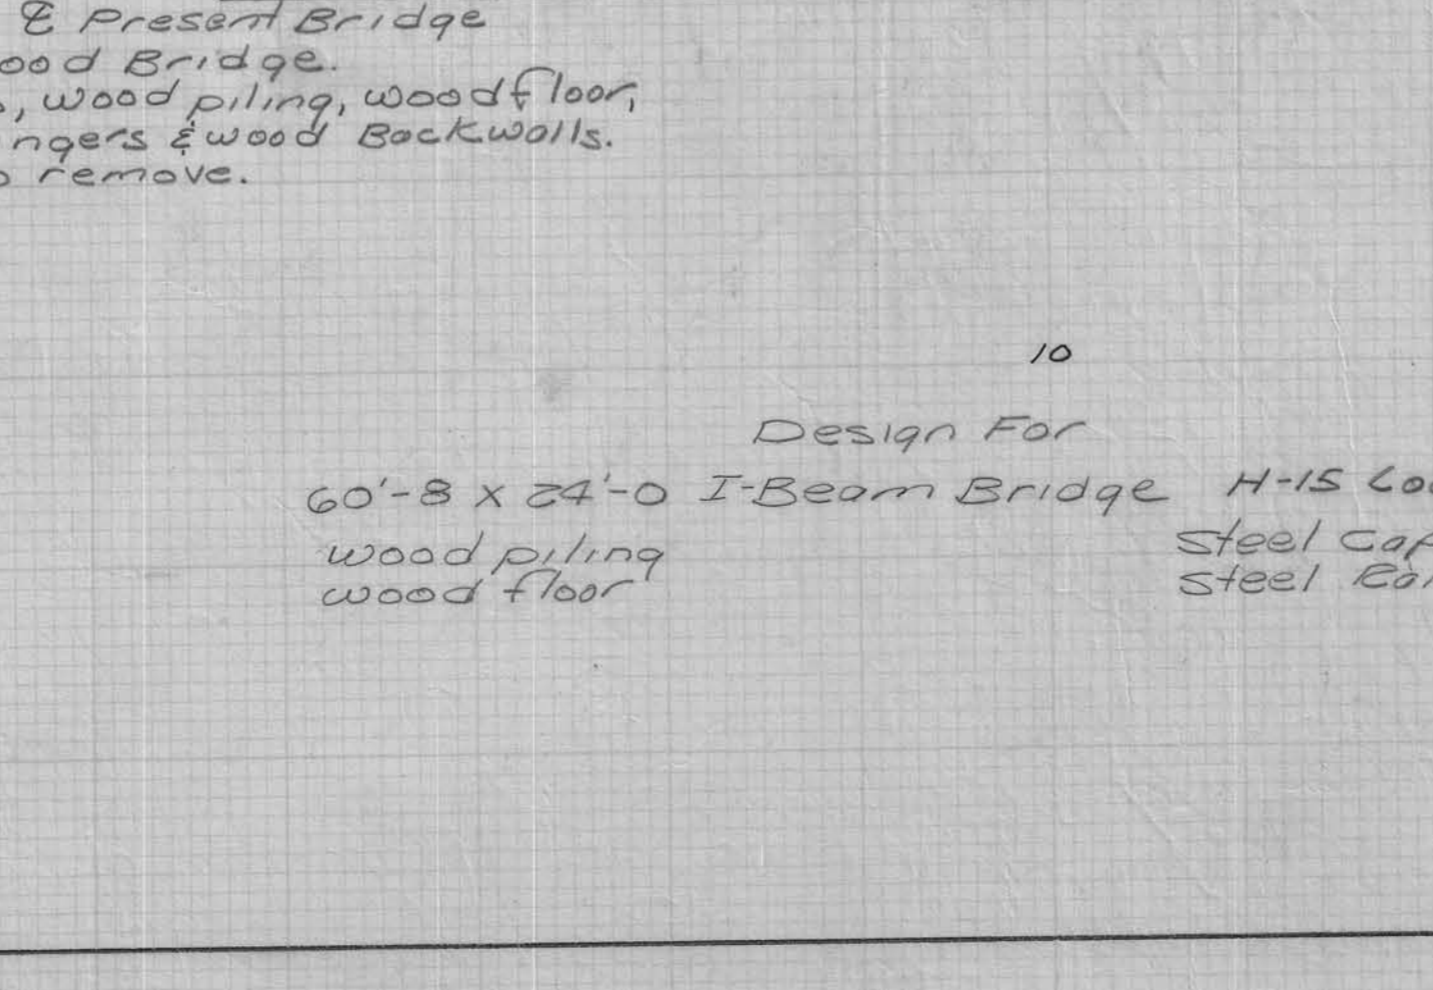 ℄ Present Bridge
ood Bridge.
, wood piling, wood floor,
ngers & wood Backwalls.
o remove.
10
Design For
60'-8 x 24'-0 I-Beam Bridge H-15 Loa
wood piling
Steel Cap
wood floor
Steel Rai